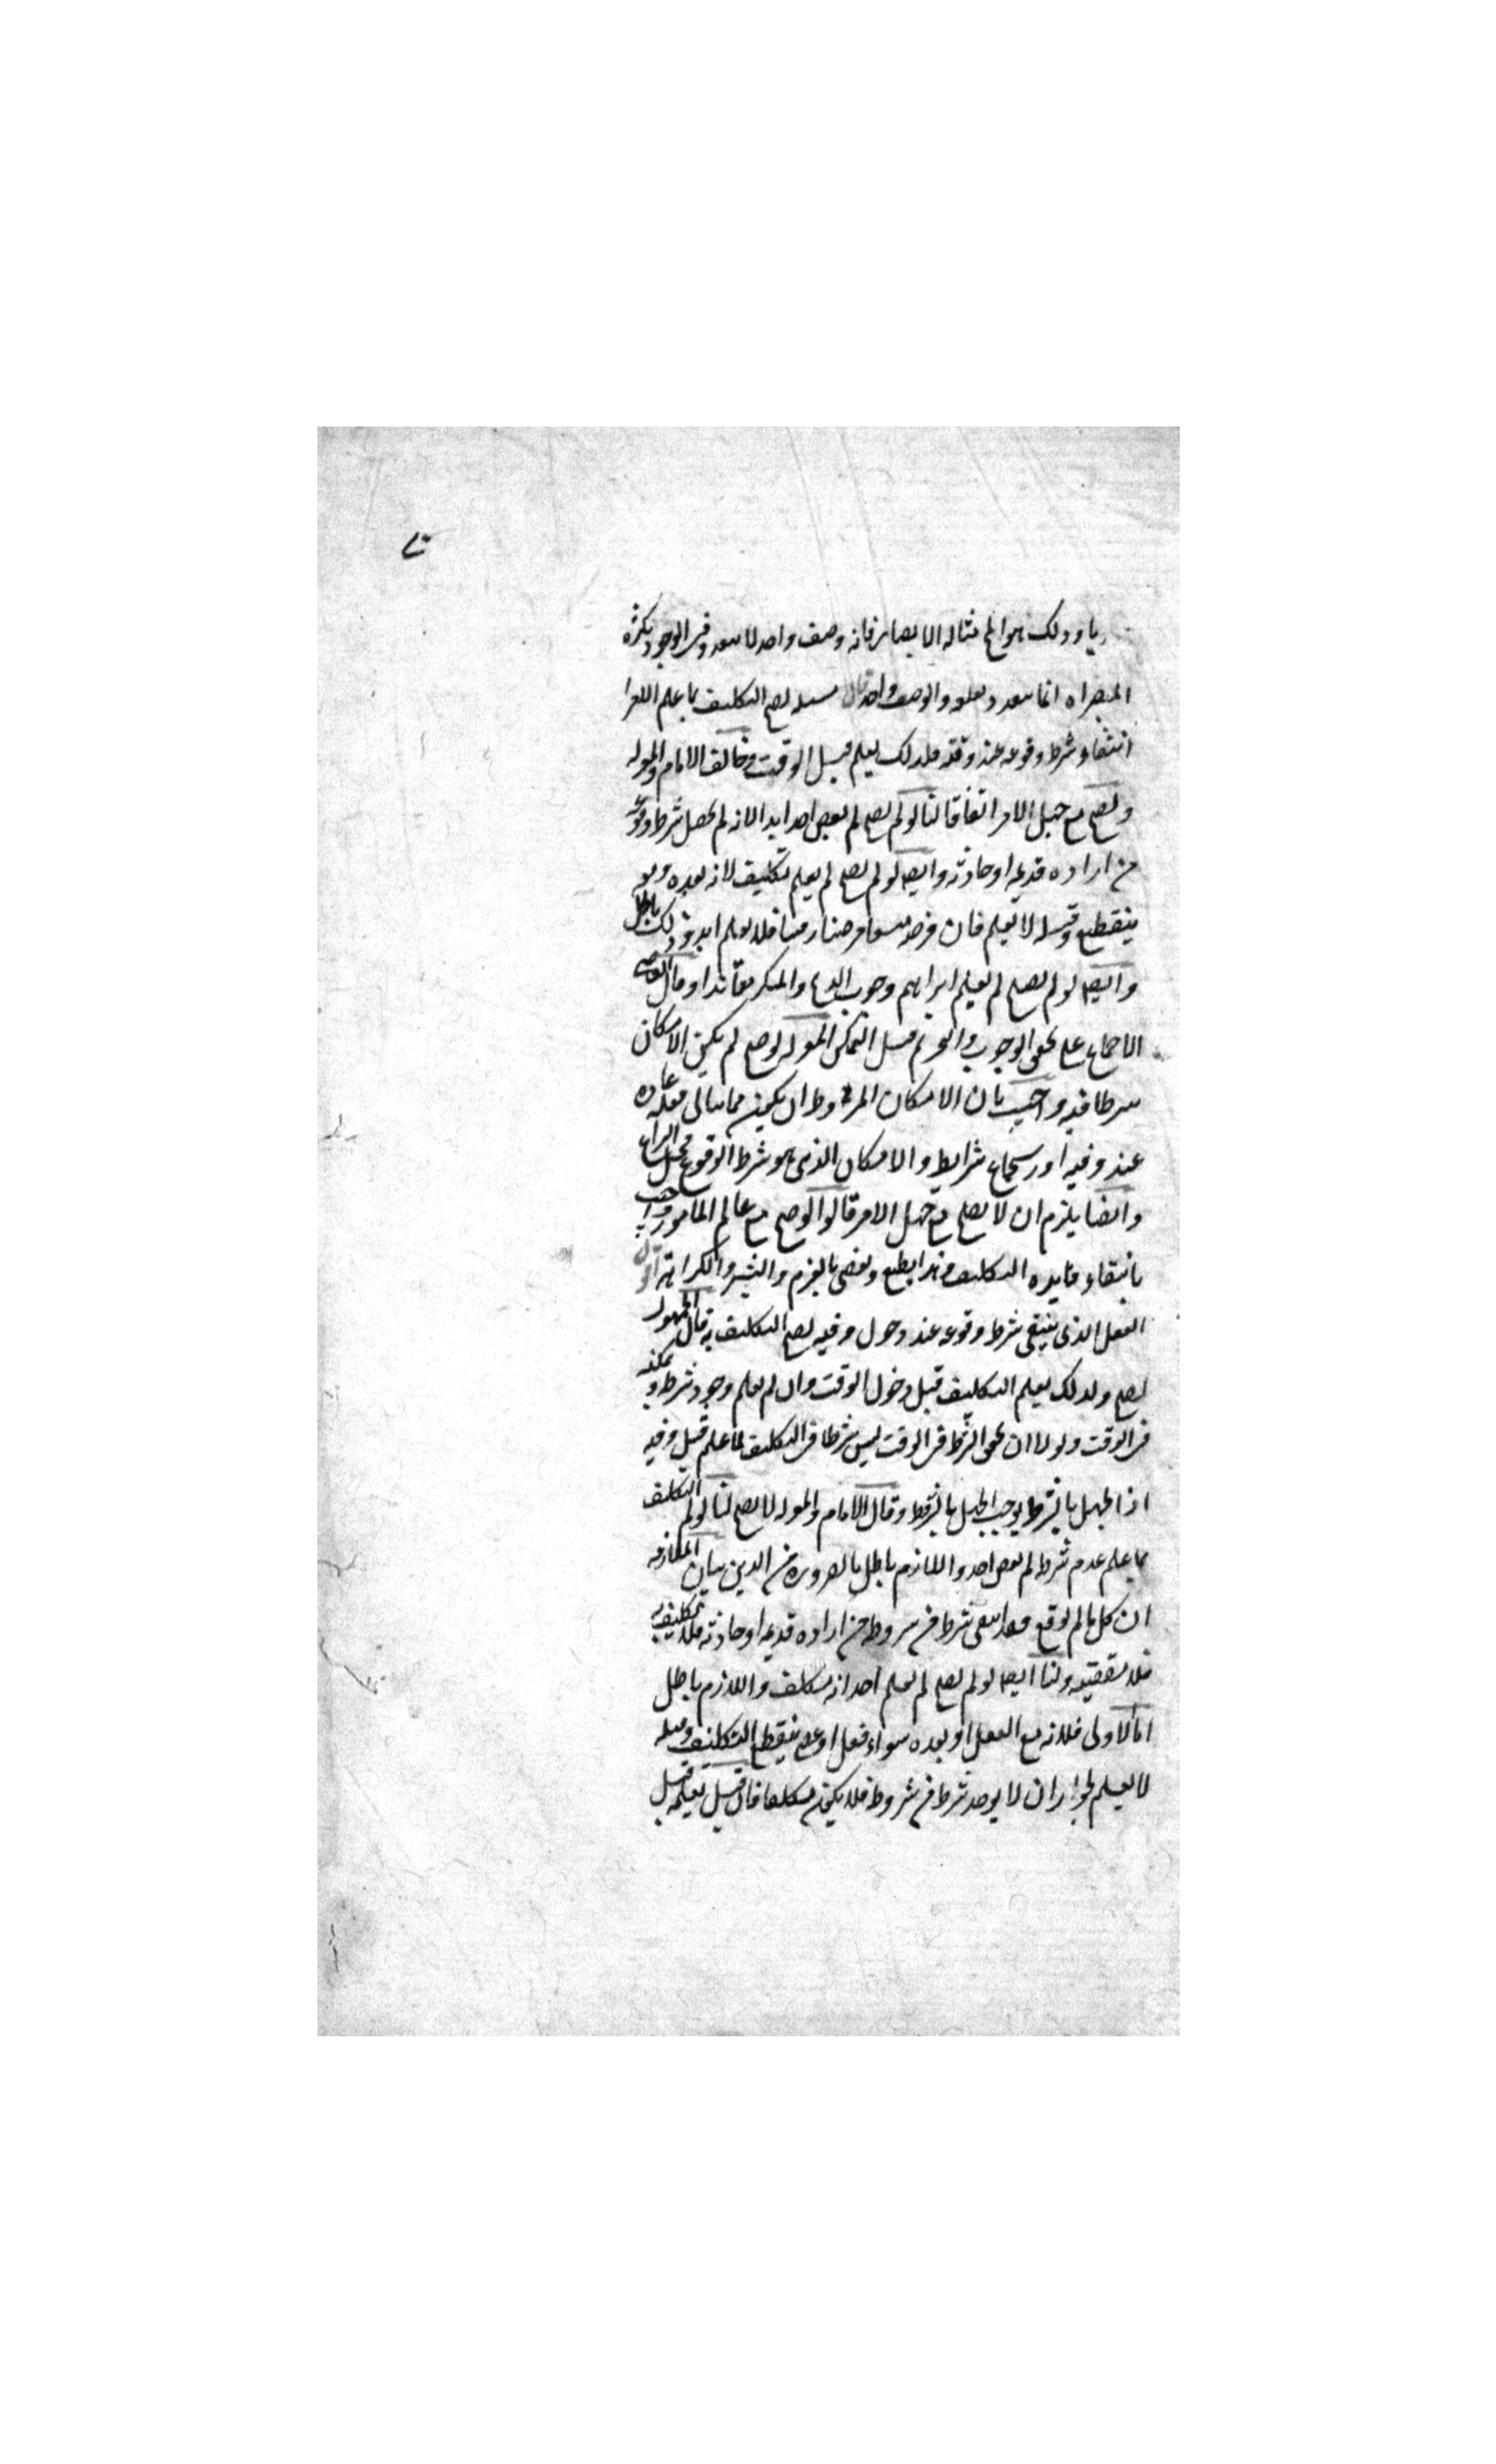 وذلك هو الحق مثاله الابصار فانه وصف واحد لا يتعدد في الوجود بكثرة
المبصرات انما يتعدد تعلقه والوصف واحد قال مسئلة يصح التكليف بما علم الامر
انتفاء شرط وقوعه عند وقته فلذلك يعلم قبل الوقت وخالف الامام والمعتزلة
ويصح مع جهل الامر اتفاقا لنا لو لم يصح لم يعص احد ابدا لانه لم يحصل شرط وقوعه
من ارادة قديمة او حادثة وايضا لو لم يصح لم يعلم تكليف لانه بعده ومعه
ينقطع وقبله لا يعلم فان فرضه متسعا فرضناه زمنا زمنا فلا يعلم ابدا وذلك باطل
وايضا لو لم يصح لم يعلم ابراهيم وجوب الذبح والمنكر معاند وقال القاضي
الاجماع على تحقق الوجوب والتحريم قبل التمكن المعتزلة لو صح لم يكن الامكان
شرطا فيه واجيب بان الامكان المشروط ان يكون مما يتاتى فعله عادة
عند وقته واستجماع شرايطه والامكان الذي هو شرط الوقوع محل النزاع
وايضا يلزم ان لا يصح مع جهل الامر قالوا لو صح مع علم المامور واجيب
بانتفاء فايدة التكليف وهذا يطيع ويعصى بالعزم والبشر والكراهة اقول
الفعل الذي ينتفي شرط وقوعه عند دخول وقته يصح التكليف به قال الجمهور
يصح ولذلك يعلم التكليف قبل دخول الوقت وان لم يعلم وجود شرطه وتمكنه
في الوقت ولولا ان تحقق الشرط في الوقت ليس شرطا في التكليف لما علم قبل وقته
اذ الجهل بالشرط يوجب الجهل بالمشروط وقال الامام والمعتزلة لا يصح لنا لو لم التكليف
بما علم عدم شرطه لم يعص احد واللازم باطل بالضرورة من الدين بيان الملازمة
ان كل ما لم يوقع فقد انتفى شرط من شروطه من ارادة قديمة او حادثة فلا تكليف به
فلا معصية ولنا ايضا لو لم يصح لم يعلم احد انه مكلف واللازم باطل
اما الاولى فلانه مع الفعل او بعده سواء فعل او عصى ينقطع التكليف وقبله
لا يعلم لجواز ان لا يوجد شرط من شروطه فلا يكون مكلفا فان قيل يعلمه قبل